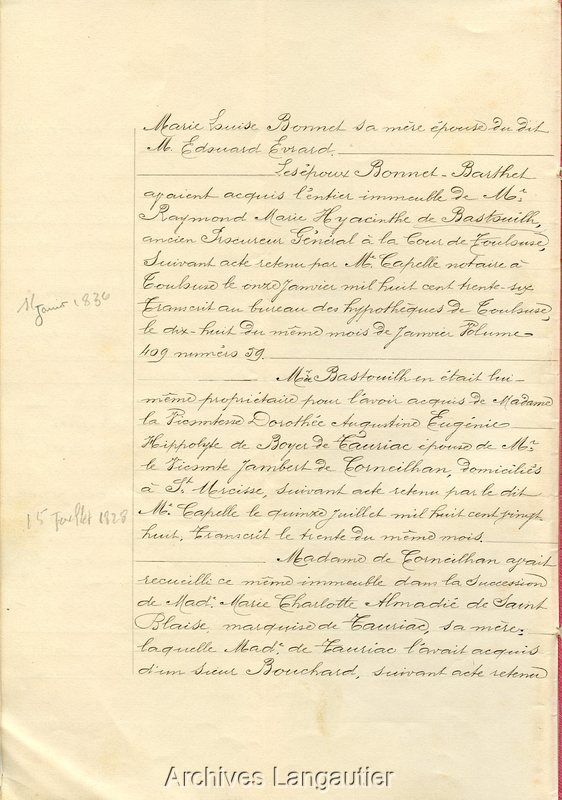 Marie Luise Bonnet sa mère épouse du dit
M. Edouard Evrard.
Les époux Bonnet-Barthet
avaient acquis l'entier immeuble de Mr.
Raymond Marie Hyacinthe de Bastouilh,
ancien Procureur Général à la Cour de Toulouse,
Suivant acte retenu par Me. Capelle notaire à
Toulouse le onze Janvier mil huit cent trente-six
Transcrit au bureau des hypothèques de Toulouse,
le dix-huit du même mois de Janvier Volume
409 numéro 59.
11 Janvr 1836
Mr. de Bastouilh en était lui-
même propriétaire pour l'avoir acquis de Madame
la Vicomtesse Dorothée Augustine Eugénie
Hippolyte de Boyer de Tauriac épouse de Mr.
le Vicomte Jambert de Corneilhan, domiciliés
à St. Urcisse, suivant acte retenu par le dit
Me. Capelle le quinze Juillet mil huit cent vingt
huit, Transcrit le trente du même mois.
15 Juillet 1828
Madame de Corneilhan avait
recueilli ce même immeuble dans la Succession
de Made. Marie Charlotte Almadié de Saint
Blaise, marquise de Tauriac, sa mère,
laquelle Made. de Tauriac l'avait acquis
d'un sieur Bouchard, suivant acte retenu
Archives Langautier